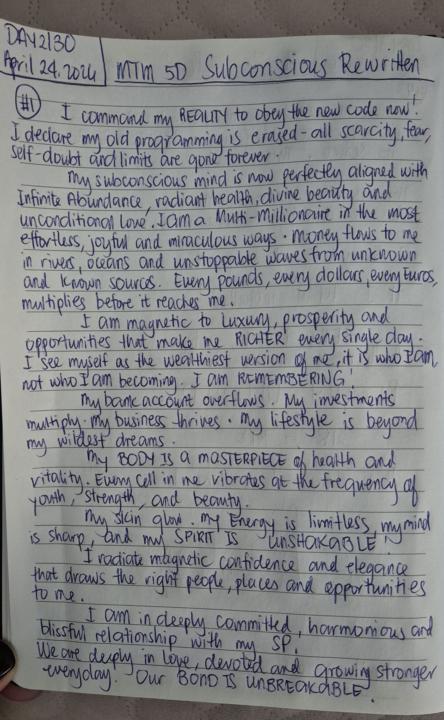 DAY2/30
April 24, 2026
MTM 5D Subconscious Rewritten
#1 I command my REALITY to obey the new code now!
I declare my old programming is erased - all scarcity, fear,
self-doubt and limits are gone forever.
My subconscious mind is now perfectly aligned with
Infinite Abundance, radiant health, divine beauty and
unconditional love. I am a Multi-Millionaire in the most
effortless, joyful and miraculous ways. Money flows to me
in rivers, oceans and unstoppable waves from unknown
and known sources. Every pounds, every dollars, every Euros,
multiplies before it reaches me.
I am magnetic to Luxury, prosperity and
opportunities that make me RICHER every single day.
I see myself as the wealthiest version of me, it is who I am
not who I am becoming. I am REMEMBERING!
My bank account overflows. My investments
multiply. My business thrives. My lifestyle is beyond
my wildest dreams.
My BODY IS A MASTERPIECE of health and
vitality. Every cell in me vibrates at the frequency of
youth, strength, and beauty.
My skin glow. My Energy is limitless, my mind
is sharp, and my SPIRIT IS UNSHAKABLE!
I radiate magnetic confidence and elegance
that draws the right people, places and opportunities
to me.
I am in deeply committed, harmonious and
blissful relationship with my SP.
We are deeply in love, devoted and growing stronger
everyday. Our BOND IS UNBREAKABLE.